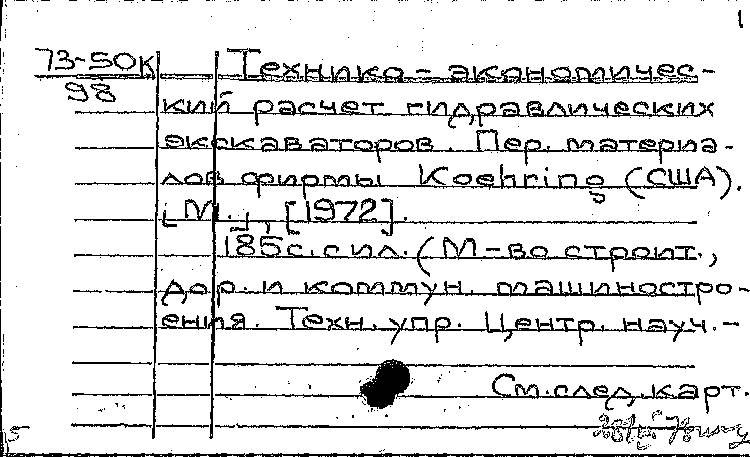 1
73-50К
98
Технико-экономичес-
кий расчет гидравлических
экскаваторов. Пер. материа-
лов фирмы Koehring (США).
[М.], [1972].
185 с. с ил. (М-во строит.,
дор. и коммун. машиностро-
ения. Техн. упр. Центр. науч.-
См. след. карт.
5